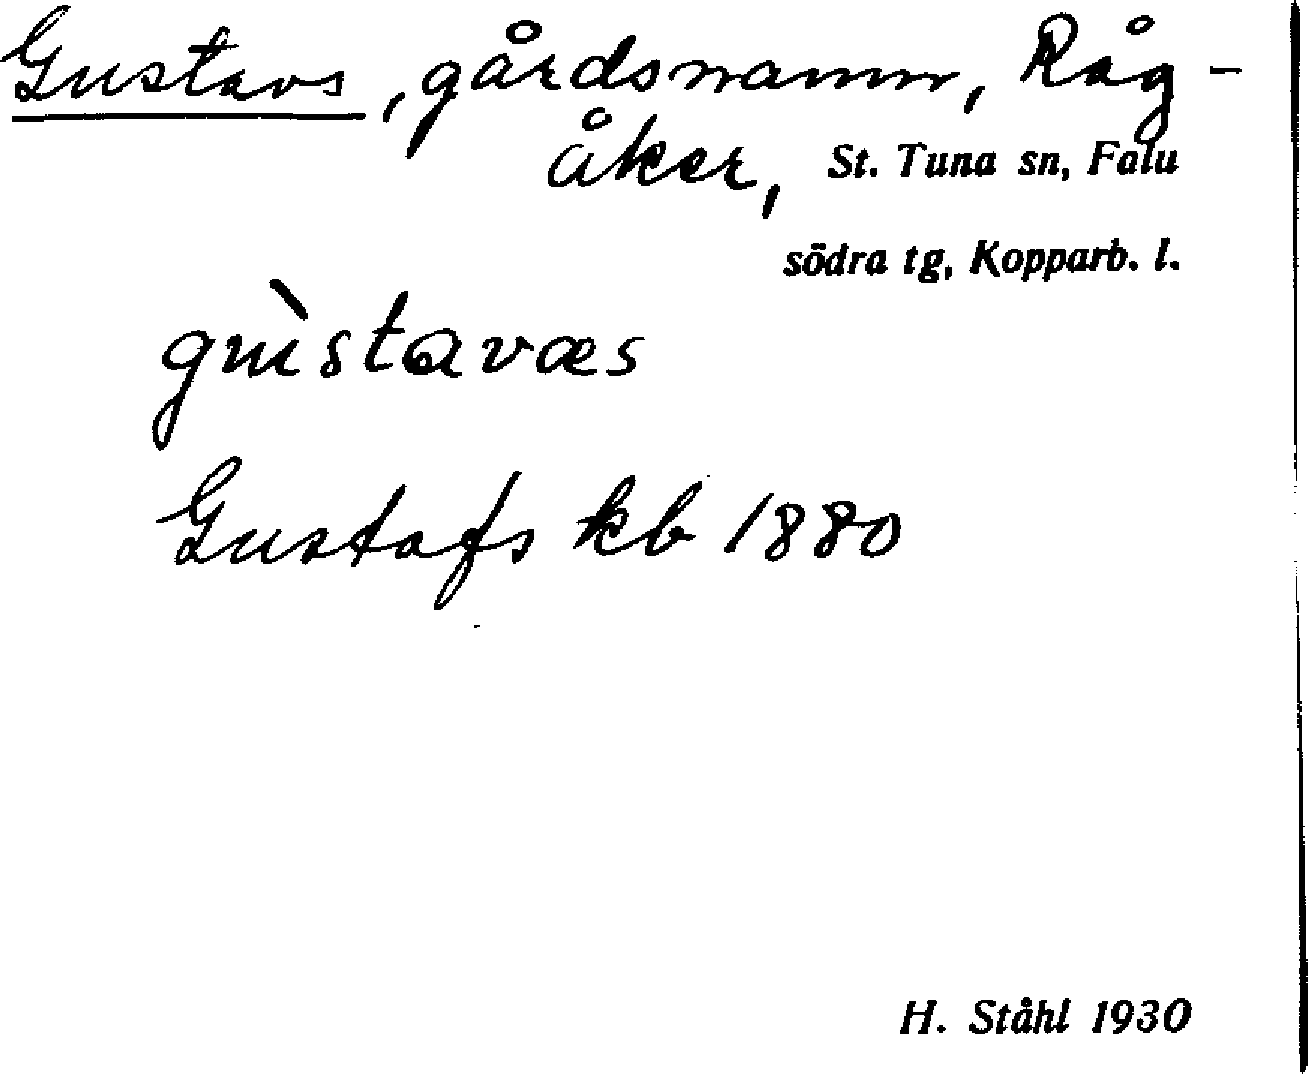 Gustavs, gårdsnamn, Råg-
åker, St. Tuna sn, Falu
södra tg, Kopparb. l.
gùstavæs
Gustafs kb 1880
H. Ståhl 1930